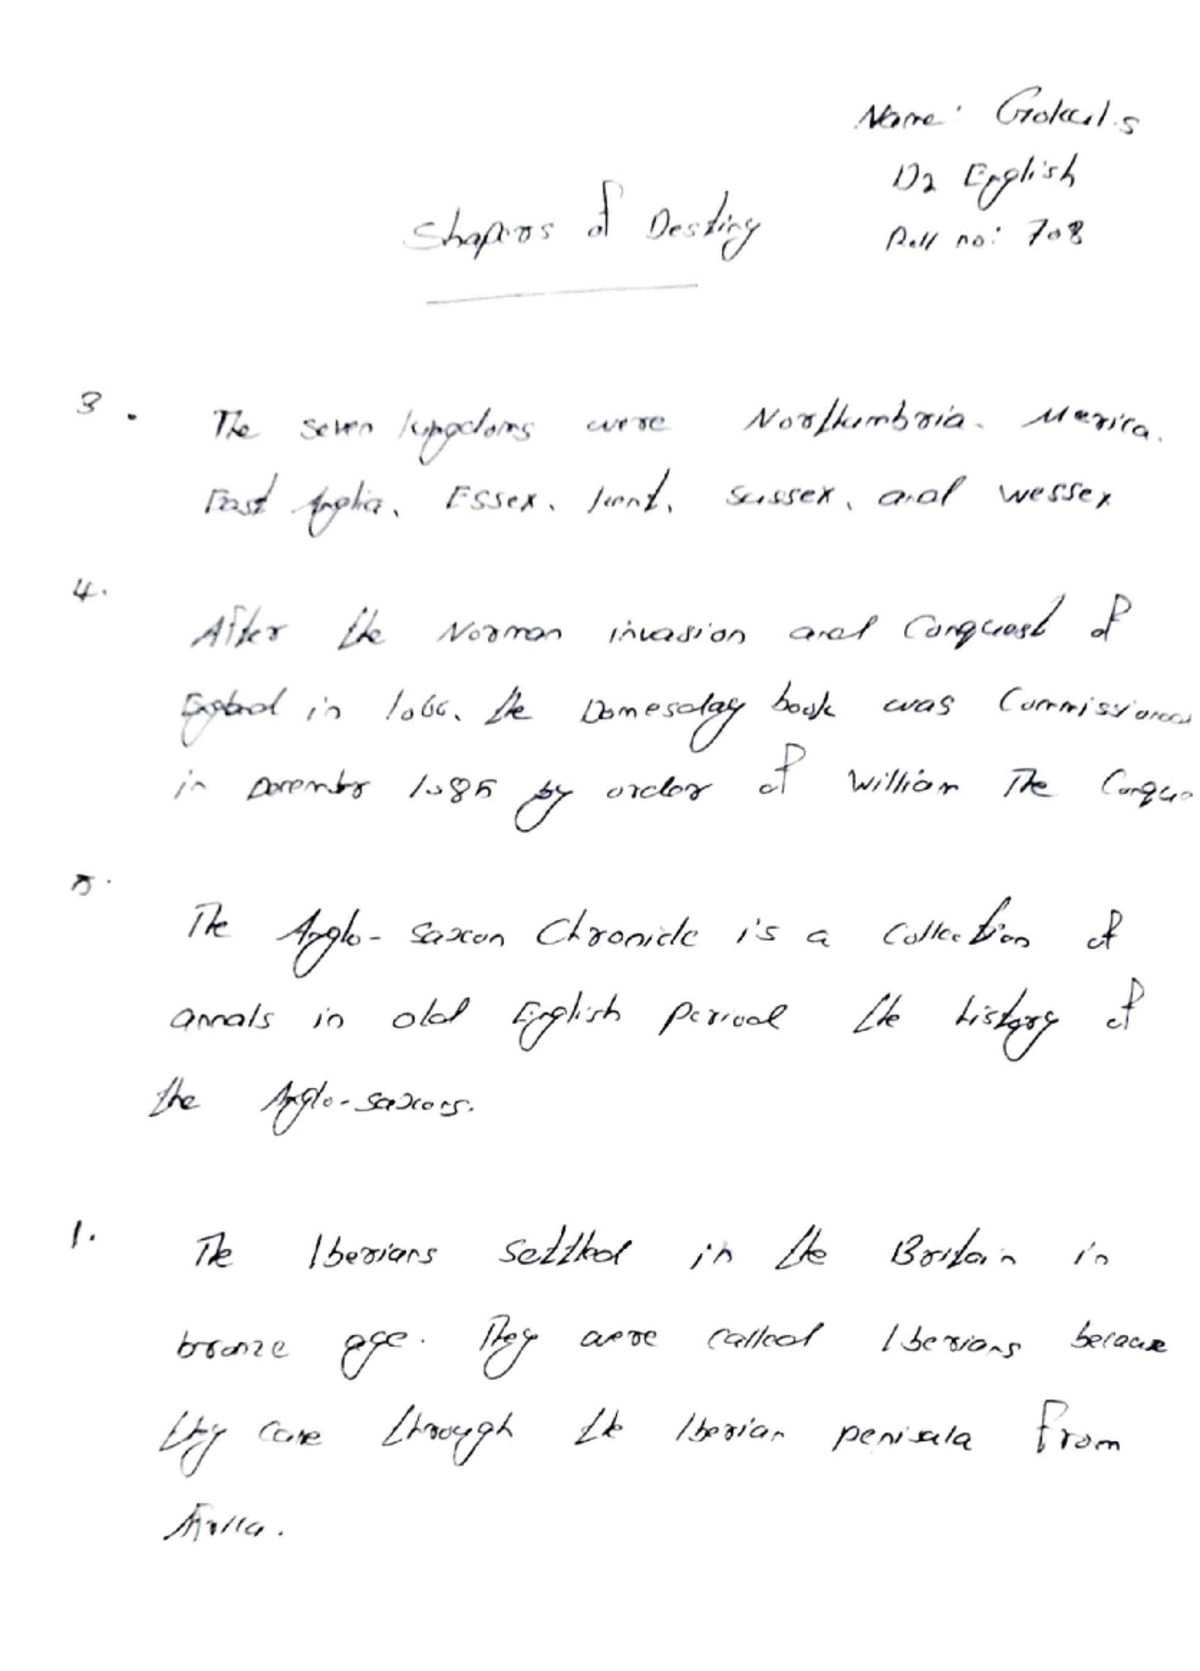 Name: Gokul.s
D2 English
Roll no: 708
Shapers of Destiny
3. The seven kingdoms were Northumbria. Merica.
East Anglia, Essex, Kent, Sussex, and wessex
4.
After the Norman invasion and Conquest of
England in 1066. the Domesday book was Commissioned
in December 1085 by order of William The Conque
5.
The Anglo-saxon Chronicle is a Collection of
annals in old English period the history of
the Anglo-saxons.
1. The Iberians settled in the Britain in
bronze age. They were called Iberians because
they came through the Iberian penisula from